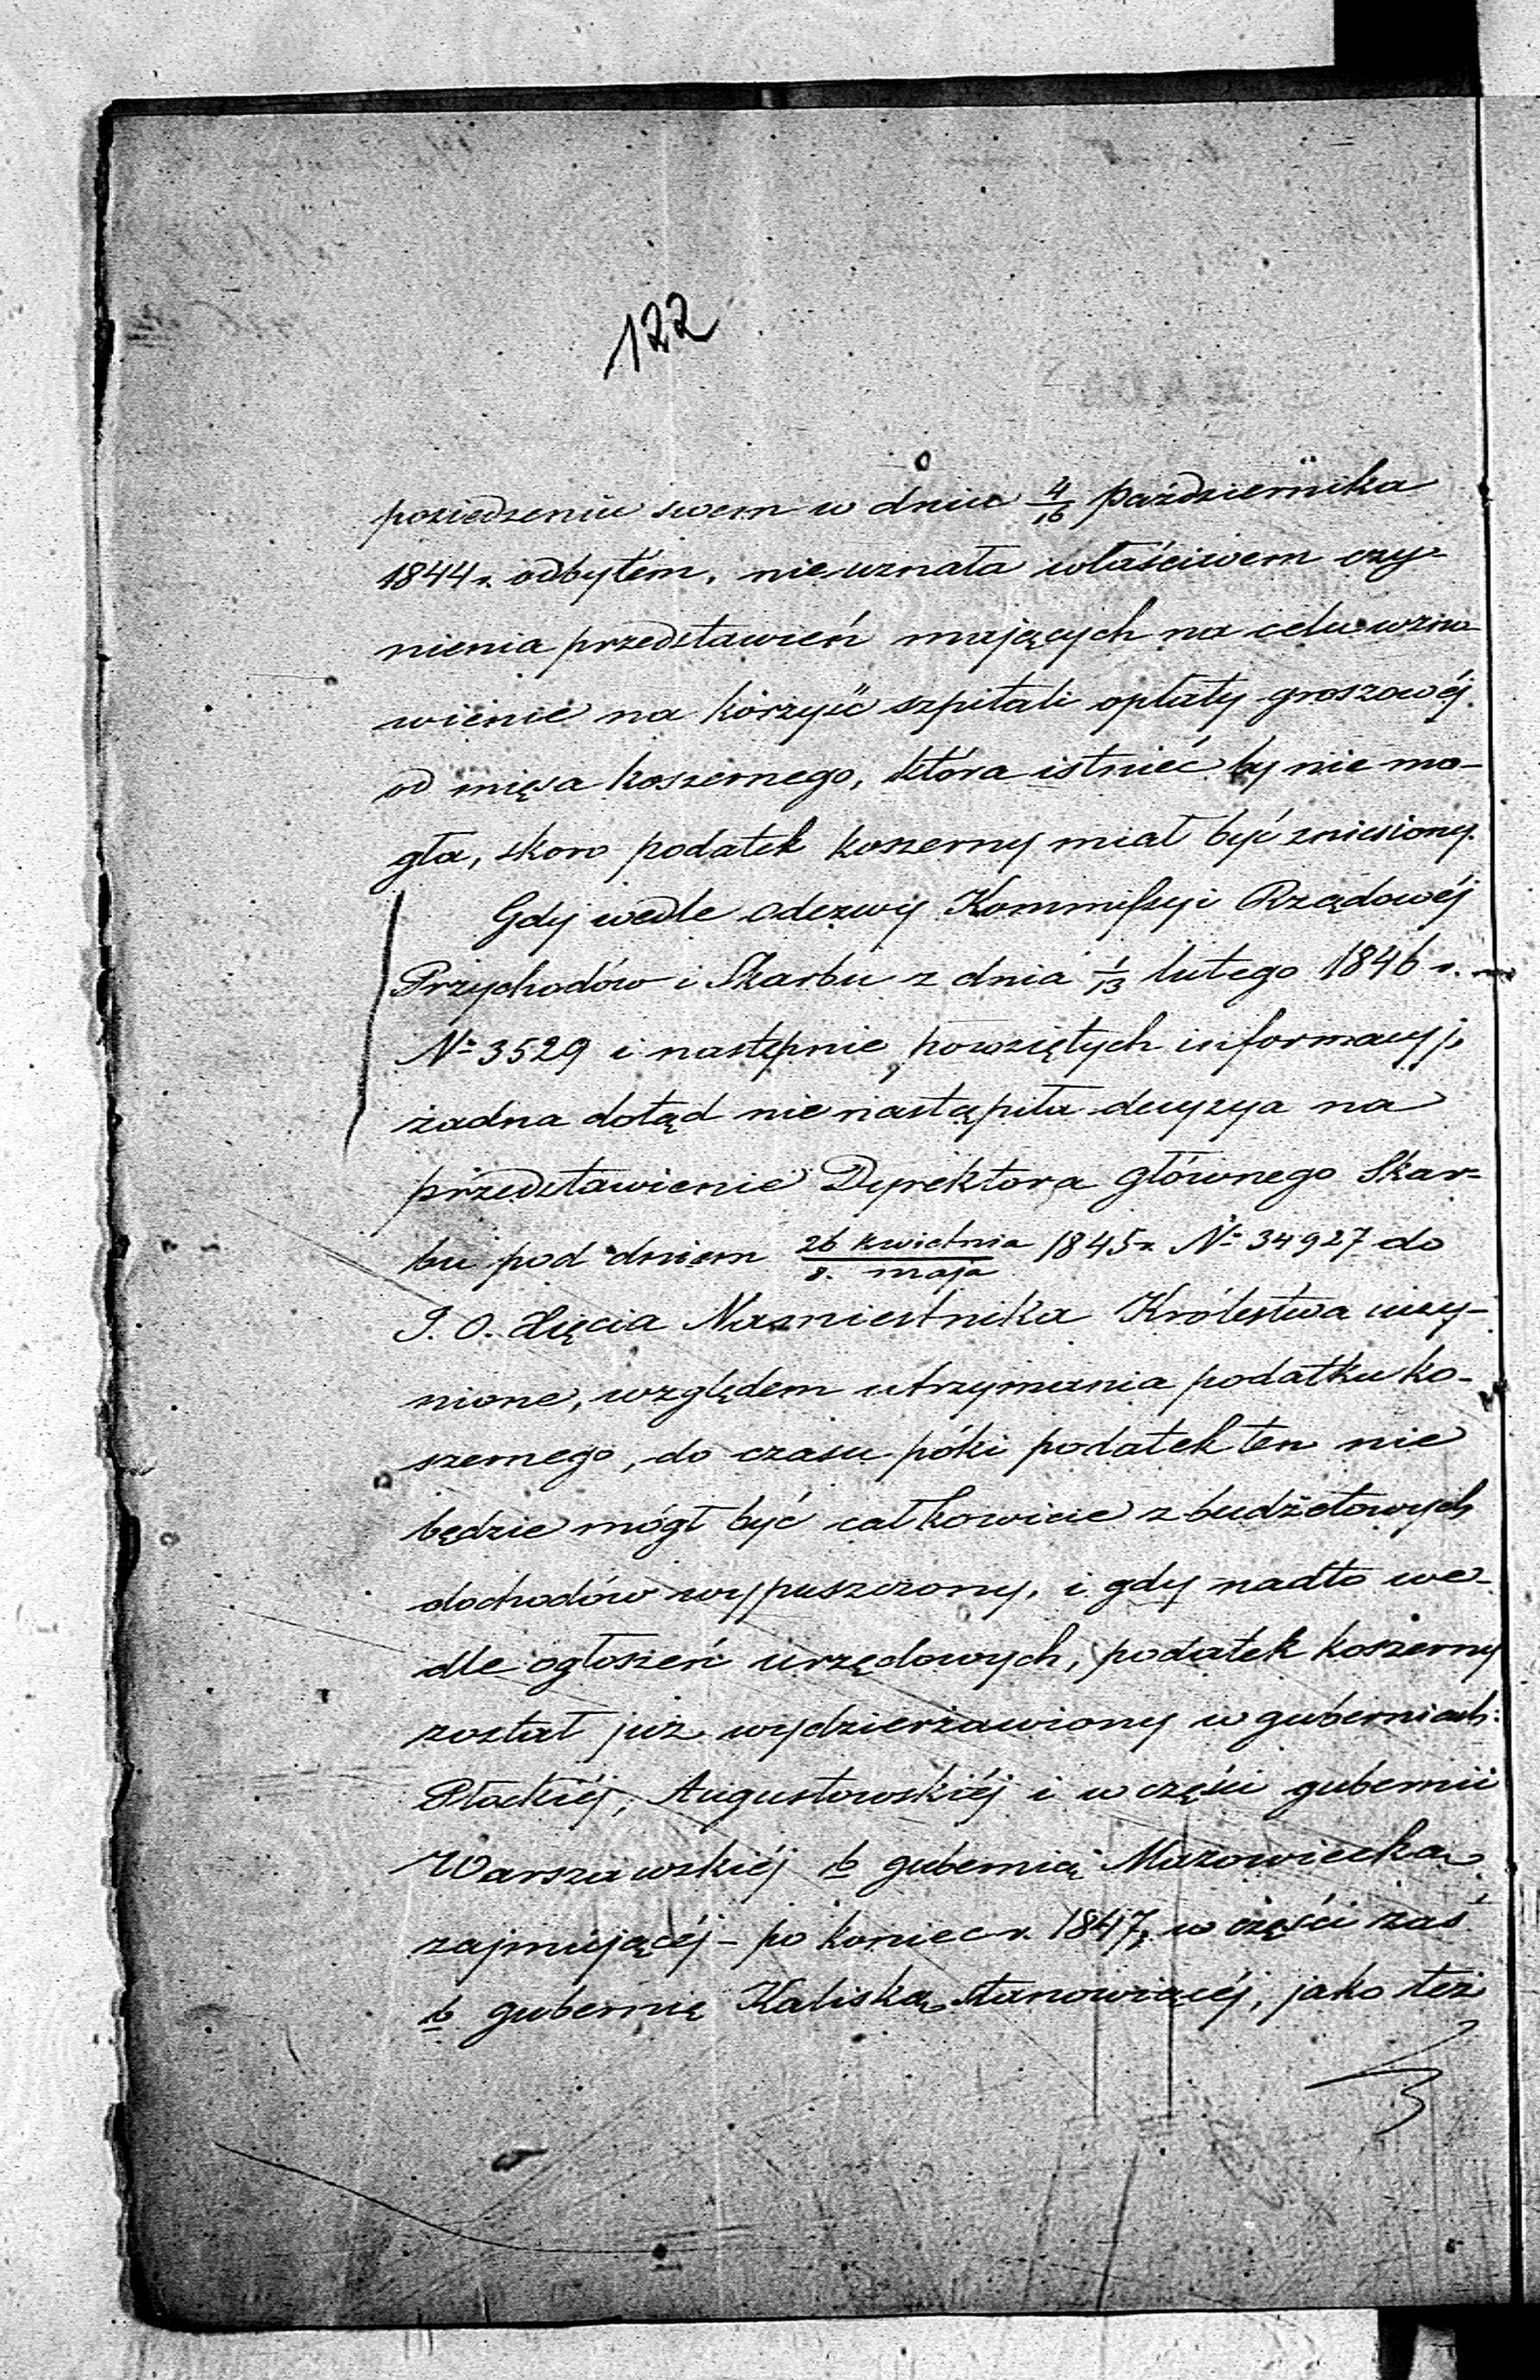 122
posiedzeniu swem w dniu 4/16 Października
1844 r. odbytém, nie uznała właściwem czy-
nienia przedstawień mających na celu wzno-
wienie na korzyść szpitali opłaty groszowéj
od mięsa koszernego, która istnieć by nie mo-
gła, skoro podatek koszerny miał być zniesiony.
Gdy wedle odezwy Kommissyi Rządowéj
Przychodów i Skarbu z dnia 1/13 lutego 1846 r.
№ 3529 i następnie powziętych informacyj,
żadna dotąd nie nastąpiła decyzya na
przedstawienie Dyrektora głównego Skar-
bu pod dniem 26 kwietnia/8. maja 1845 r. № 34927 do
J. O. Xięcia Namiestnika Królestwa uczy-
nione, względem utrzymania podatku ko-
szernego, do czasu póki podatek ten nie
będzie mógł być całkowicie z budżetowych
dochodów wypuszczony, i gdy nadto we-
dle ogłoszeń urzędowych, podatek koszerny
został już wydzierżawiony w guberniach:
Płockiéj, Augustowskiéj i w części gubernii
Warszawskiéj b. gubernią Mazowiecką
zajmującéj - po koniec r. 1847, w części zaś
b. gubernię Kaliską stanowiącéj, jako też